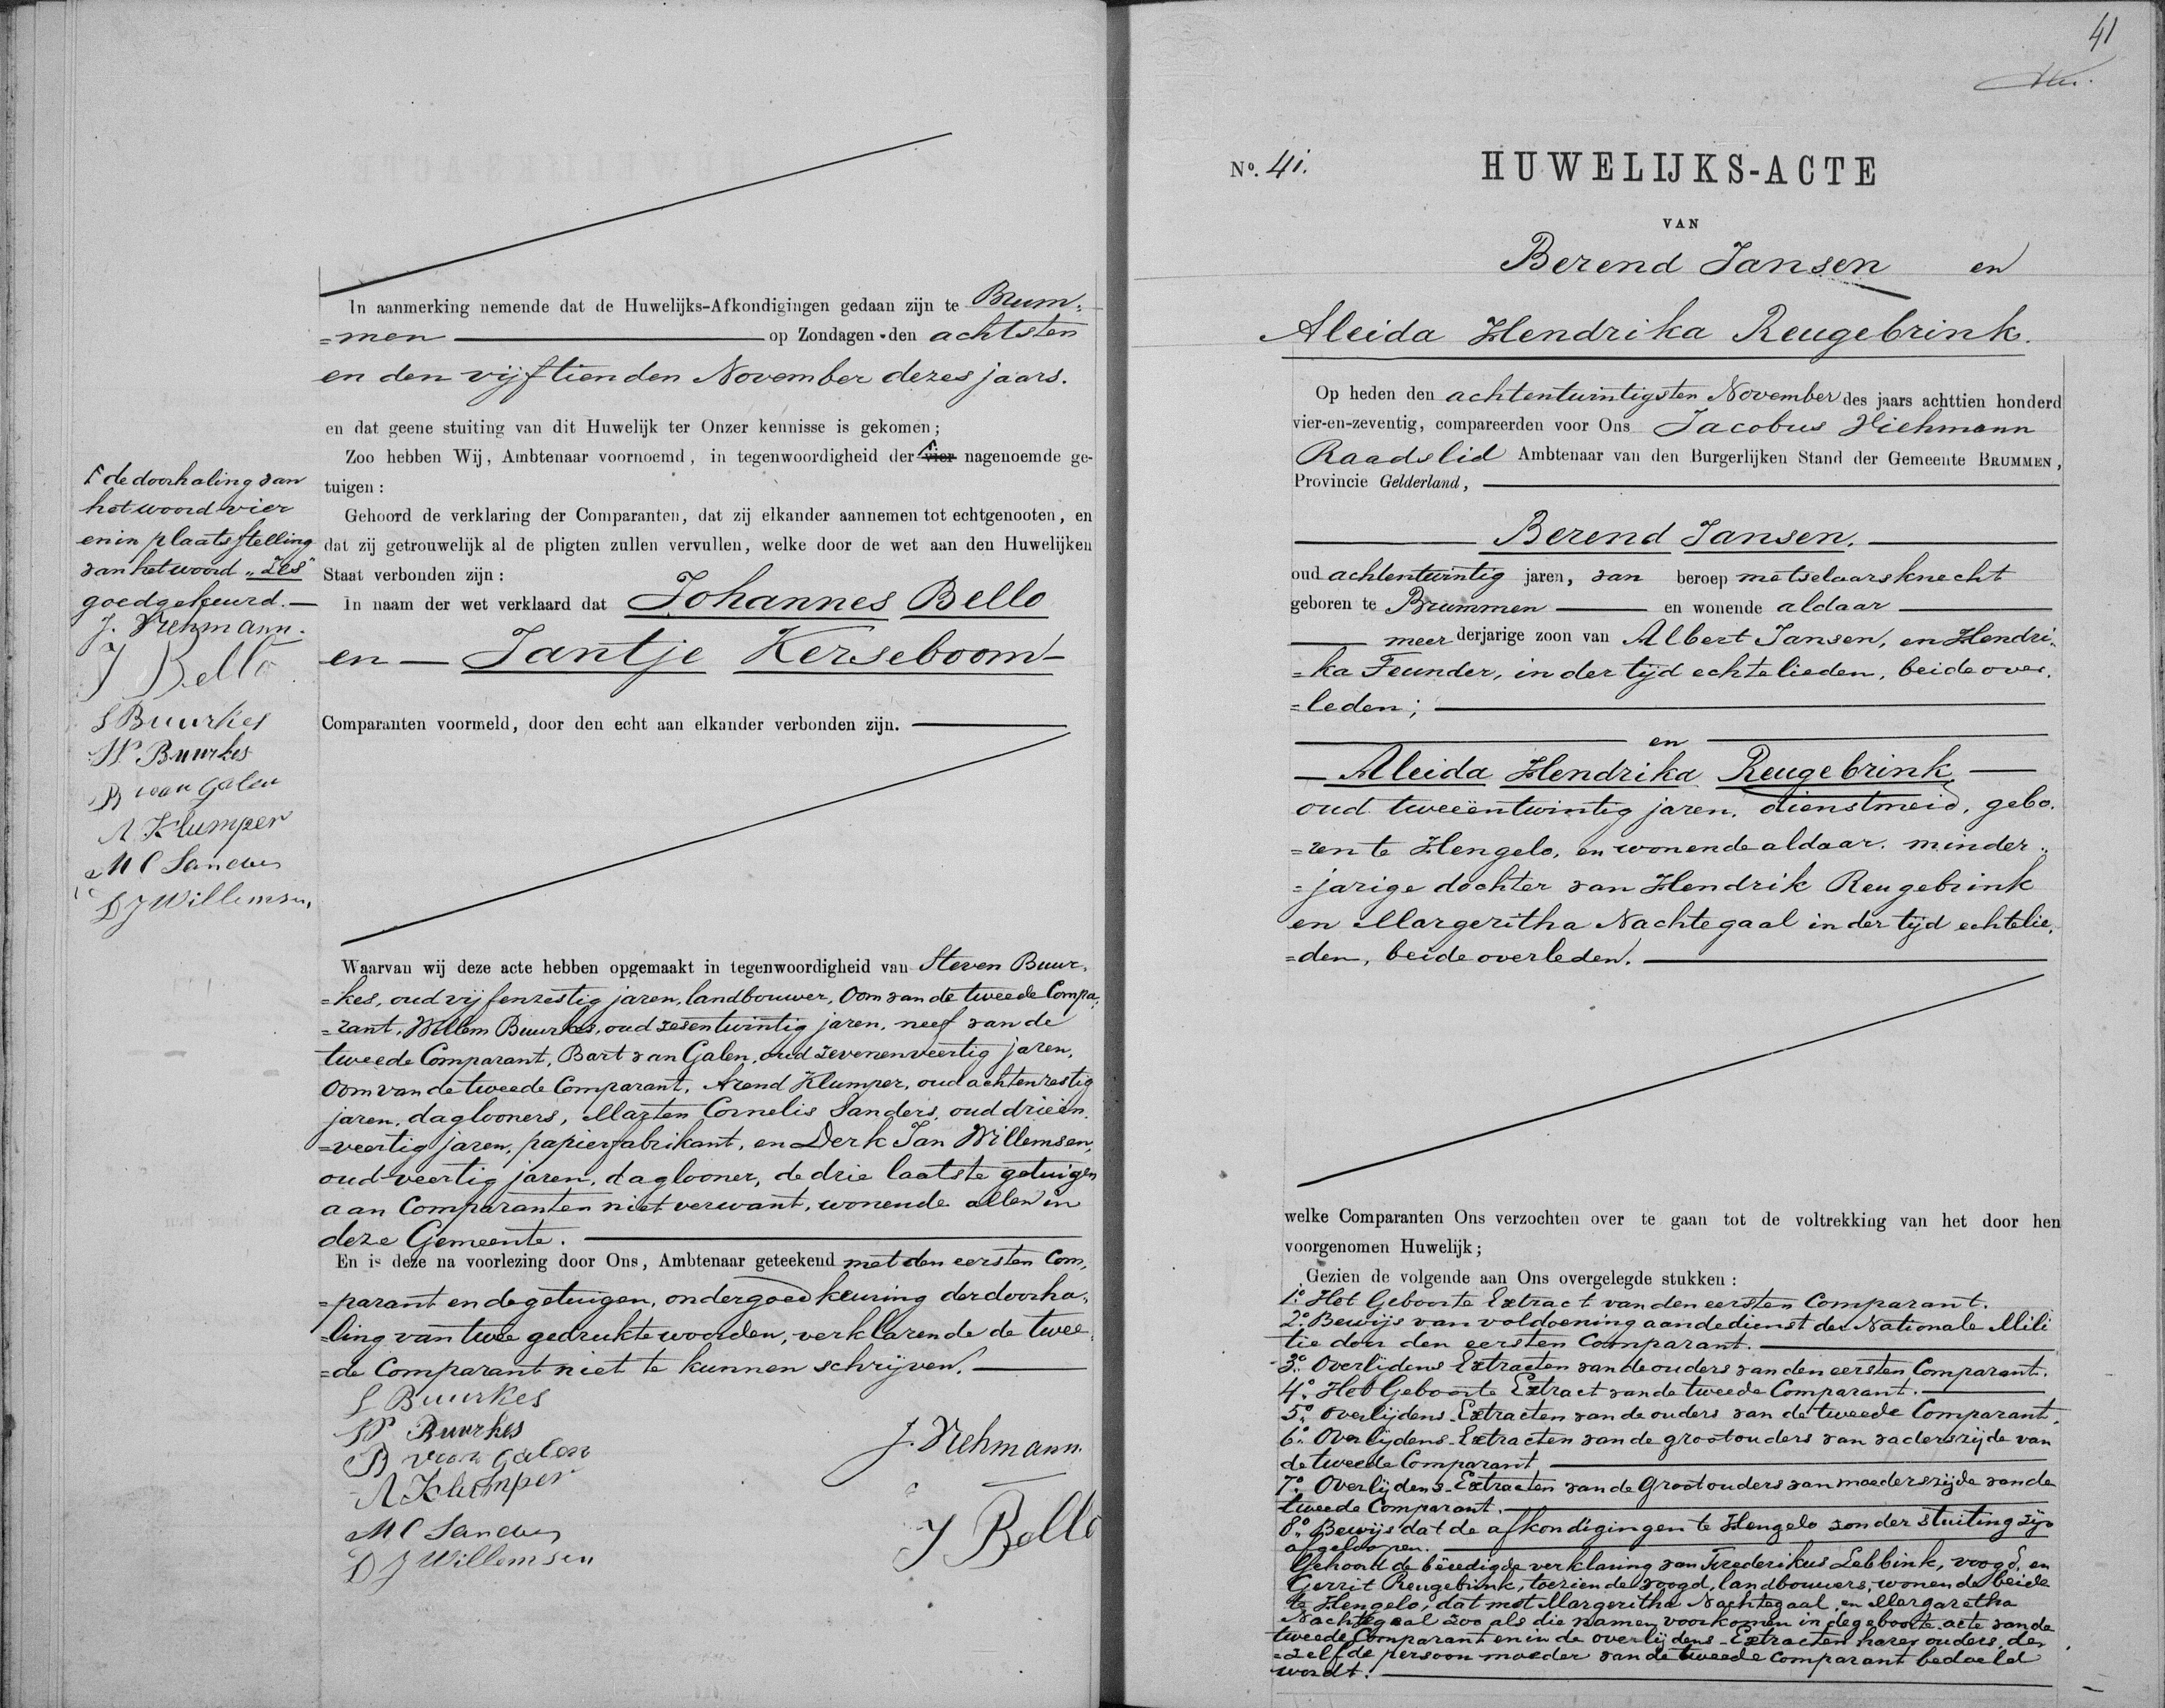 In aanmerking nemende dat de Huwelijks-Afkondigingen gedaan zijn te Brum=
=men op Zondagen den achtsten
en den vijftienden November dezes jaars.
en dat geene stuiting van dit Huwelijk ter Onzer kennisse is gekomen;
Zoo hebben Wij, Ambtenaar voornoemd, in tegenwoordigheid der vier nagenoemde ge-
tuigen:
Gehoord de verklaring der Comparanten, dat zij elkander aannemen tot echtgenooten, en
dat zij getrouwelijk al de pligten zullen vervullen, welke door de wet aan den Huwelijken
Staat verbonden zijn:
In naam der wet verklaard dat Johannes Bello
en Jantje Kerseboom
Comparanten voormeld, door den echt aan elkander verbonden zijn.
de doorhaling van
het woord vier
en in plaatsstelling
van het woord „Zes"
goedgekeurd.
J. Viehmann.
J Bello
S Buurkes
W Buurkes
B van Galen
A Klumper
M C Sanders
D J Willemsen
Waarvan wij deze acte hebben opgemaakt in tegenwoordigheid van Steven Buur=
=kes, oud vijfenzestig jaren, landbouwer, Oom van de tweede Compa=
=rant, Willem Buurkes, oud zesentwintig jaren, neef van de
tweede Comparant, Bart van Galen, oud zevenenveertig jaren,
Oom van de tweede Comparant, Arend Klumper, oud achtenzestig
jaren, daglooners, Marten Cornelis Sanders, oud drieën=
=veertig jaren, papierfabrikant, en Derk Jan Willemsen,
oud veertig jaren, daglooner, de drie laatste getuigen
aan Comparanten niet verwant, wonende allen in
deze Gemeente.
En is deze na voorlezing door Ons, Ambtenaar geteekend met den eersten Com=
=parant en de getuigen, onder goedkeuring der doorha=
=ling van twee gedrukte woorden, verklarende de twee=
=de Comparant niet te kunnen schrijven.
S Buurkes
W Buurkes
B van Galen
A Klumper
M C Sanders
D J Willemsen
J. Viehmann.
J Bello
41
No. 41.
HUWELIJKS-ACTE
VAN
Berend Jansen en
Aleida Hendrika Reugebrink.
Op heden den achtentwintigsten November des jaars achttien honderd
vier-en-zeventig, compareerden voor Ons Jacobus Viehmann
Raadslid Ambtenaar van den Burgerlijken Stand der Gemeente BRUMMEN,
Provincie Gelderland,
Berend Jansen.
oud achtentwintig jaren, van beroep metselaarsknecht
geboren te Brummen en wonende aldaar
meerderjarige zoon van Albert Jansen, en Hendri=
=ka Feunder, in der tijd echtelieden, beide over=
=leden;
en
Aleida Hendrika Reugebrink,
oud tweeëntwintig jaren, dienstmeid, gebo=
=ren te Hengelo, en wonende aldaar, minder=
=jarige dochter van Hendrik Reugebrink
en Margeritha Nachtegaal in der tijd echtelie=
=den, beide overleden.
welke Comparanten Ons verzochten over te gaan tot de voltrekking van het door hen
voorgenomen Huwelijk;
Gezien de volgende aan Ons overgelegde stukken:
1o. Het Geboorte Extract van den eersten Comparant.
2o. Bewijs van voldoening aan de dienst der Nationale Mili
tie door den eersten Comparant.
3o. Overlijdens Extracten van de ouders van den eersten Comparant.
4o. Het Geboorte Extract van de tweede Comparant.
5o. Overlijdens-Extracten van de ouders van de tweede Comparant.
6o. Overlijdens-Extracten van de grootouders van vaderszijde van
de tweede Comparant
7o. Overlijdens-Extracten van de Grootouders van moederszijde van de
tweede Comparant.
8o. Bewijs dat de afkondigingen te Hengelo zonder stuiting zijn
afgeloopen.
Gehoord de beëedigde verklaring van Frederikus Lebbink, voogd, en
Gerrit Reugebrink, toeziende voogd, landbouwers, wonende beide
te Hengelo, dat met Margeritha Nachtegaal en Margaretha
Nachtegaal zoo als die namen voorkomen in de geboorte acte van de
tweede Comparant en in de overlijdens-Extracten harer ouders, de=
=zelfde persoon moeder van de tweede comparant bedoeld
wordt.